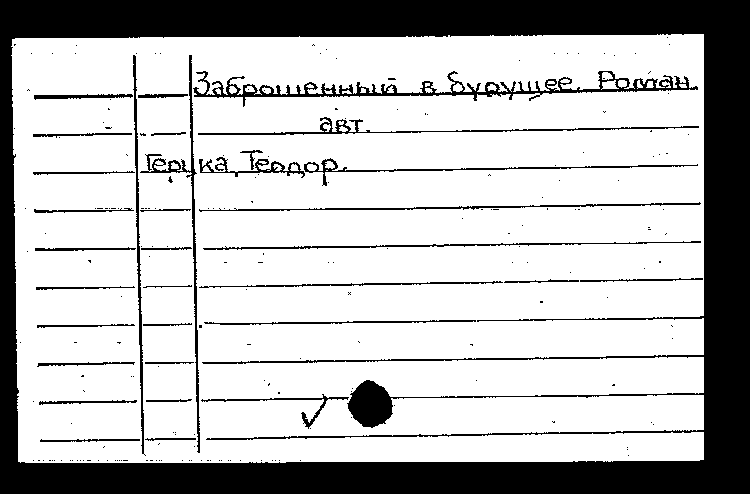 Заброшенный в будущее. Роман.
авт.
Герцка, Теодор.